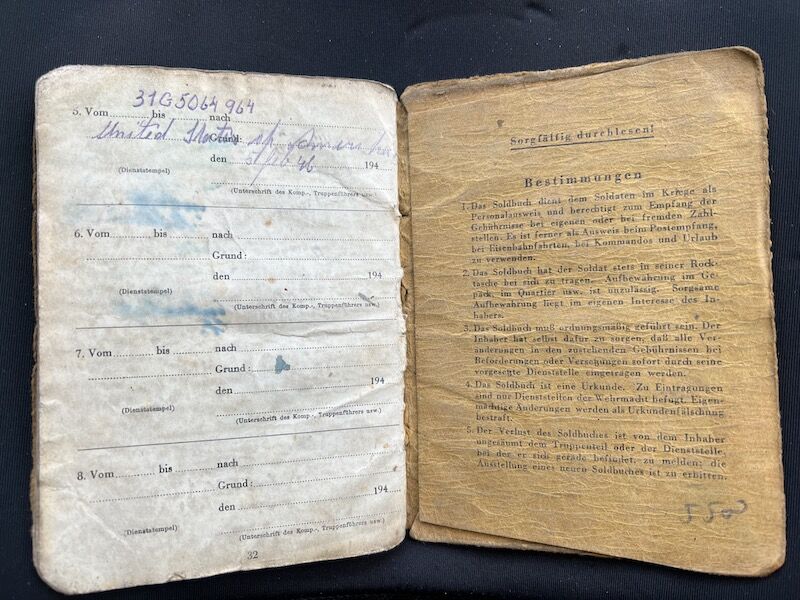 31G5064964
5. Vom bis nach
United States of America
Grund:
den 5 Feb 46 194
(Dienststempel)
(Unterschrift des Komp-, Truppenführers usw.)
6. Vom bis nach
Grund:
den 194
(Dienststempel)
(Unterschrift des Komp-, Truppenführers usw.)
7. Vom bis nach
Grund:
den 194
(Dienststempel)
(Unterschrift des Komp-, Truppenführers usw.)
8. Vom bis nach
Grund:
den 194
(Dienststempel)
(Unterschrift des Komp-, Truppenführers usw.)
32
Sorgfältig durchlesen!
Bestimmungen
1. Das Soldbuch dient dem Soldaten im Kriege als
Personalausweis und berechtigt zum Empfang der
Gebührnisse bei eigenen oder bei fremden Zahl-
stellen. Es ist ferner als Ausweis beim Postempfang,
bei Eisenbahnfahrten, bei Kommandos und Urlaub
zu verwenden.
2. Das Soldbuch hat der Soldat stets in seiner Rock-
tasche bei sich zu tragen. Aufbewahrung im Ge-
päck, im Quartier usw. ist unzulässig. Sorgsame
Aufbewahrung liegt im eigenen Interesse des In-
habers.
3. Das Soldbuch muß ordnungsmäßig geführt sein. Der
Inhaber hat selbst dafür zu sorgen, daß alle Ver-
änderungen in den zustehenden Gebührnissen bei
Beförderungen oder Versetzungen sofort durch seine
vorgesetzte Dienststelle eingetragen werden.
4. Das Soldbuch ist eine Urkunde. Zu Eintragungen
sind nur Dienststellen der Wehrmacht befugt. Eigen-
mächtige Änderungen werden als Urkundenfälschung
bestraft.
5. Der Verlust des Soldbuches ist von dem Inhaber
ungesäumt dem Truppenteil oder der Dienststelle,
bei der er sich gerade befindet, zu melden; die
Ausstellung eines neuen Soldbuches ist zu erbitten.